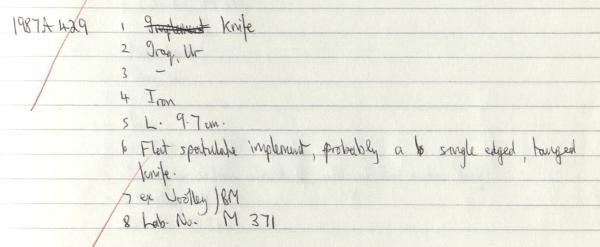 1987A429 1 Implement Knife
2 Iraq, Ur
3 -
4 Iron
5 L. 9.7 cm.
6 Flat spatulate implement, probably a single edged, tanged
knife.
7 ex Woolley / BM
8 Lab. No. M 371